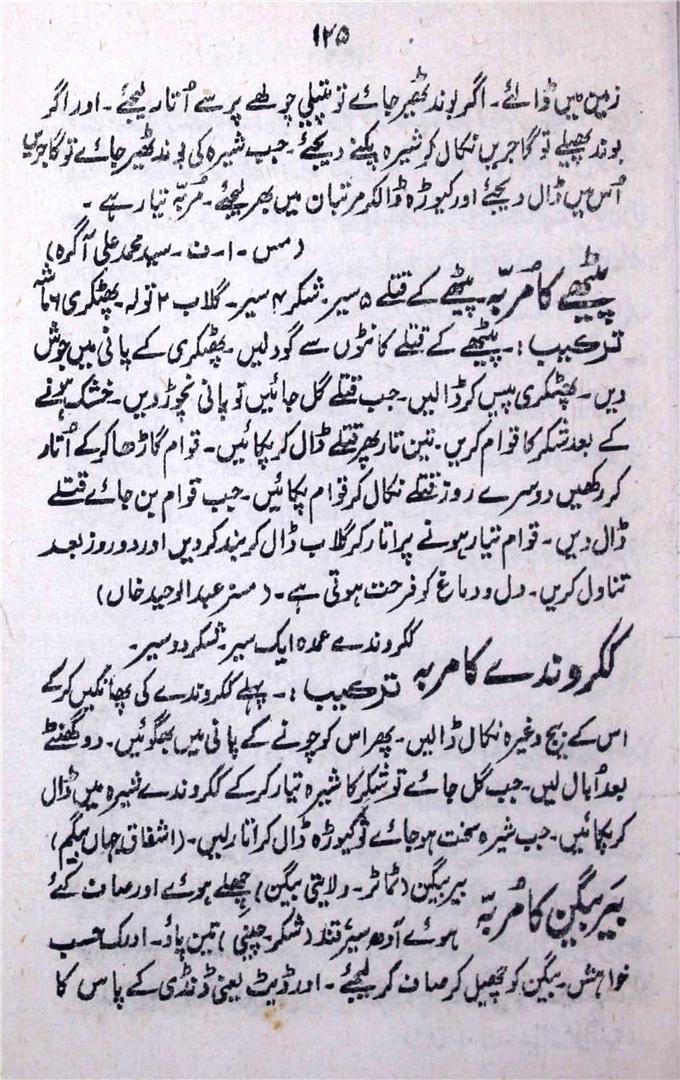 ۱۲۵
زمین میں ڈالئے۔ اگر بوند ٹھیر جائے تو پتیلی چولھے پر سے اُتار لیجئے۔ اور اگر
بوند پھیلے تو گاجریں نکال کر شیرہ پکنے دیجئے۔ جب شیرہ کی بوند ٹھیر جائے تو گاجریں
اُس میں ڈال دیجئے اور کیوڑہ ڈالکر مرتبان میں بھر لیجئے۔ مُربّہ تیار ہے۔
(مس۔ ا۔ ت۔ سید محمد علی آگرہ)
پیٹھے کا مُربّہ۔ پیٹھے کے قتلے ۵ سیر۔ شکر ۴ سیر۔ گلاب ۲ تولہ۔ پھٹکری ۶ ماشہ
ترکیب:۔ پیٹھے کے قتلے کانٹوں سے گود لیں۔ پھٹکری کے پانی میں جوش
دیں۔ پھٹکری پیس کر ڈالیں۔ جب قتلے گل جائیں تو پانی نچوڑ دیں۔ خشک ہونے
کے بعد شکر کا قوام کریں۔ تین تار پھر قتلے ڈال کر پکائیں۔ قوام گاڑھا کر کے اُتار
کر رکھیں دوسرے روز قتلے نکال کر قوام پکائیں۔ جب قوام بن جائے قتلے
ڈال دیں۔ قوام تیار ہونے پر اتار کر گلاب ڈال کر بند کر دیں اور دو روز بعد
تناول کریں۔ دل و دماغ کو فرحت ہوتی ہے۔ (مسز عبدالوحید خاں)
ککروندے عمدہ ایک سیر۔ شکر دو سیر۔
ککروندے کا مربہ ترکیب:۔ پہلے ککروندے کی پھانکیں کر کے
اس کے بیج وغیرہ نکال ڈالیں۔ پھر اس کو چونے کے پانی میں بھگوئیں۔ دو گھنٹے
بعد اُبال لیں۔ جب گل جائے تو شکر کا شیرہ تیار کر کے ککروندے شیرہ میں ڈال
کر پکائیں۔ جب شیرہ سخت ہو جائے تو کیوڑہ ڈال کر اتار لیں۔ (اشفاق جہاں بیگم)
بیر بیگن کا مُربّہ بیر بیگن (ٹماٹر۔ ولایتی بیگن) چھلے ہوئے اور صاف کئے
ہوئے آدھ سیر قند (شکر۔ چینی) تین پاؤ۔ ادرک حسب
خواہش۔ بیگن کو چھیل کر صاف کر لیجئے۔ اور ڈیٹ یعنی ڈنڈی کے پاس کا